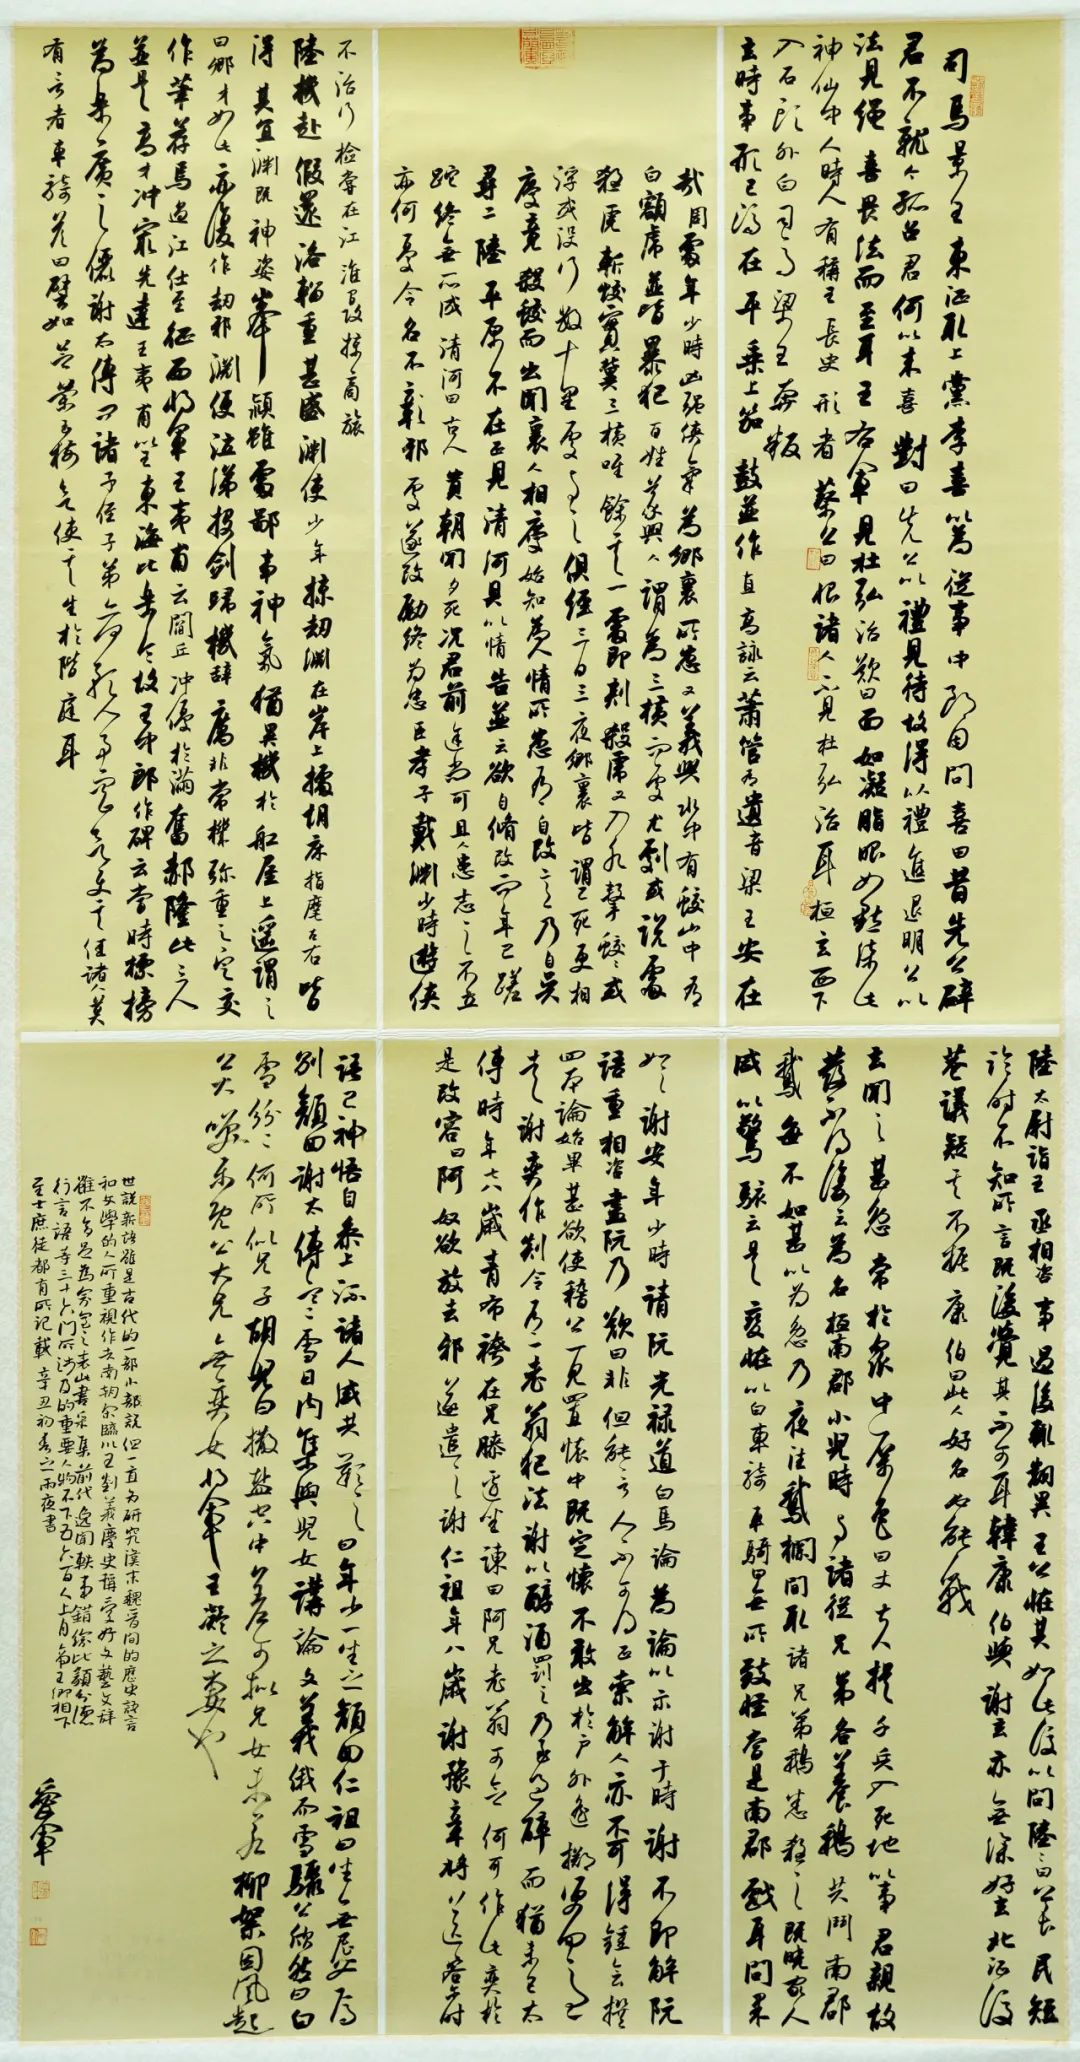 司馬景王東征取上黨李喜以為從事中郎因問喜曰昔先公辟
君不就今孤召君何以來喜對曰先公以禮見待故得以禮進退明公以
法見繩喜畏法而至耳王右軍見杜弘治歎曰面如凝脂眼如點漆此
神仙中人時人有稱王長史形者蔡公曰恨諸人不見杜弘治耳桓玄西下
入石頭外白司馬梁王奔叛
玄時事形已濟在平乘上笳鼓並作直高詠云蕭管有遺音梁王安在
哉周處年少時凶強俠氣為鄉裏所患又義興水中有蛟山中有
白額虎並皆暴犯百姓義興人謂為三橫而處尤劇或說處
殺虎斬蛟實冀三橫唯餘其一處即刺殺虎又入水擊蛟蛟或
浮或沒行數十里處與之俱經三日三夜鄉裏皆謂已死更相
慶竟殺蛟而出聞裏人相慶始知為人情所患有自改意乃自吳
尋二陸平原不在正見清河具以情告並云欲自脩改而年已蹉
跎終無所成清河曰古人貴朝聞夕死況君前途尚可且人患志之不立
亦何憂令名不彰邪處遂改勵終為忠臣孝子戴淵少時遊俠
不治行檢嘗在江淮間攻掠商旅
陸機赴假還洛輜重甚盛淵使少年掠劫淵在岸上據胡床指麾左右皆
得其宜淵既神姿峰穎雖處鄙事神氣猶異機於船屋上遙謂之
曰卿才如此亦復作劫邪淵便泣涕投劍歸機辭厲非常機彌重之定交
作筆荐焉過江仕至征西將軍王夷甫云閭丘沖優於滿奮郝隆此三人
並是高才沖最先達王夷甫以王東海比樂令故王中郎作碑云當時標榜
為樂廣之儷謝太傅問諸子侄子弟亦何預人事而正欲使其佳諸人莫
有言者車騎答曰譬如芝蘭玉樹欲使其生於階庭耳
陸太尉詣王丞相咨事過後輒翻異王公怪其如此後以問陸陸曰公長民短
臨時不知所言既後覺其不可耳韓康伯與謝玄亦無深好玄北征後
巷議疑其不振康伯曰此人好名必能戰
玄聞之甚忿常於眾中厲色曰丈夫提千兵入死地以事君親故
發不得復云為名桓南郡小兒時與諸從兄弟各養鵝共鬥南郡
鵝每不如甚以為忿乃夜往鵝欄間取諸兄弟鵝悉殺之既曉家人
咸以驚駭云是變怪以白車騎車騎曰無所致怪當是南郡戲耳問果
如之謝安年少時請阮光祿道白馬論為論以示謝于時謝不即解阮
語重相咨盡阮乃歎曰非但能言人不可得正索解人亦不可得鍾會撰
四本論始畢甚欲使嵇公一見置懷中既定懷不敢出於戶外遙擲便回急
走謝奕作剡令有一老翁犯法謝以醇酒罰之乃至過醉而猶未已太
傅時年七八歲青布袴在兄膝邊坐諫曰阿兄老翁可念何可作此奕於
是改容曰阿奴欲放去邪遂遣之謝仁祖年八歲謝豫章將送客爾時
語已神悟自參上流諸人咸共歎之曰年少一坐之顏回仁祖曰坐無尼父焉
別顏回謝太傅寒雪日內集與兒女講論文義俄而雪驟公欣然曰白
雪紛紛何所似兄子胡兒曰撒鹽空中差可擬兄女未若柳絮因風起
公大笑樂即公大兄無奕女將軍王凝之妻也
世說新語雖是古代的一部小說但一直為研究漢末魏晉間的歷史語言
和文學的人所重視作者南朝宋臨川王劉義慶史稱愛好文藝文辭
雖不多足為宗室之表此書采集前代逸聞軼事錯綜比類分德
行言語等三十六門所涉及的重要人物不下五六百人上自帝王卿相下
至士庶徒都有所記載辛丑初春之雨夜書
愛軍